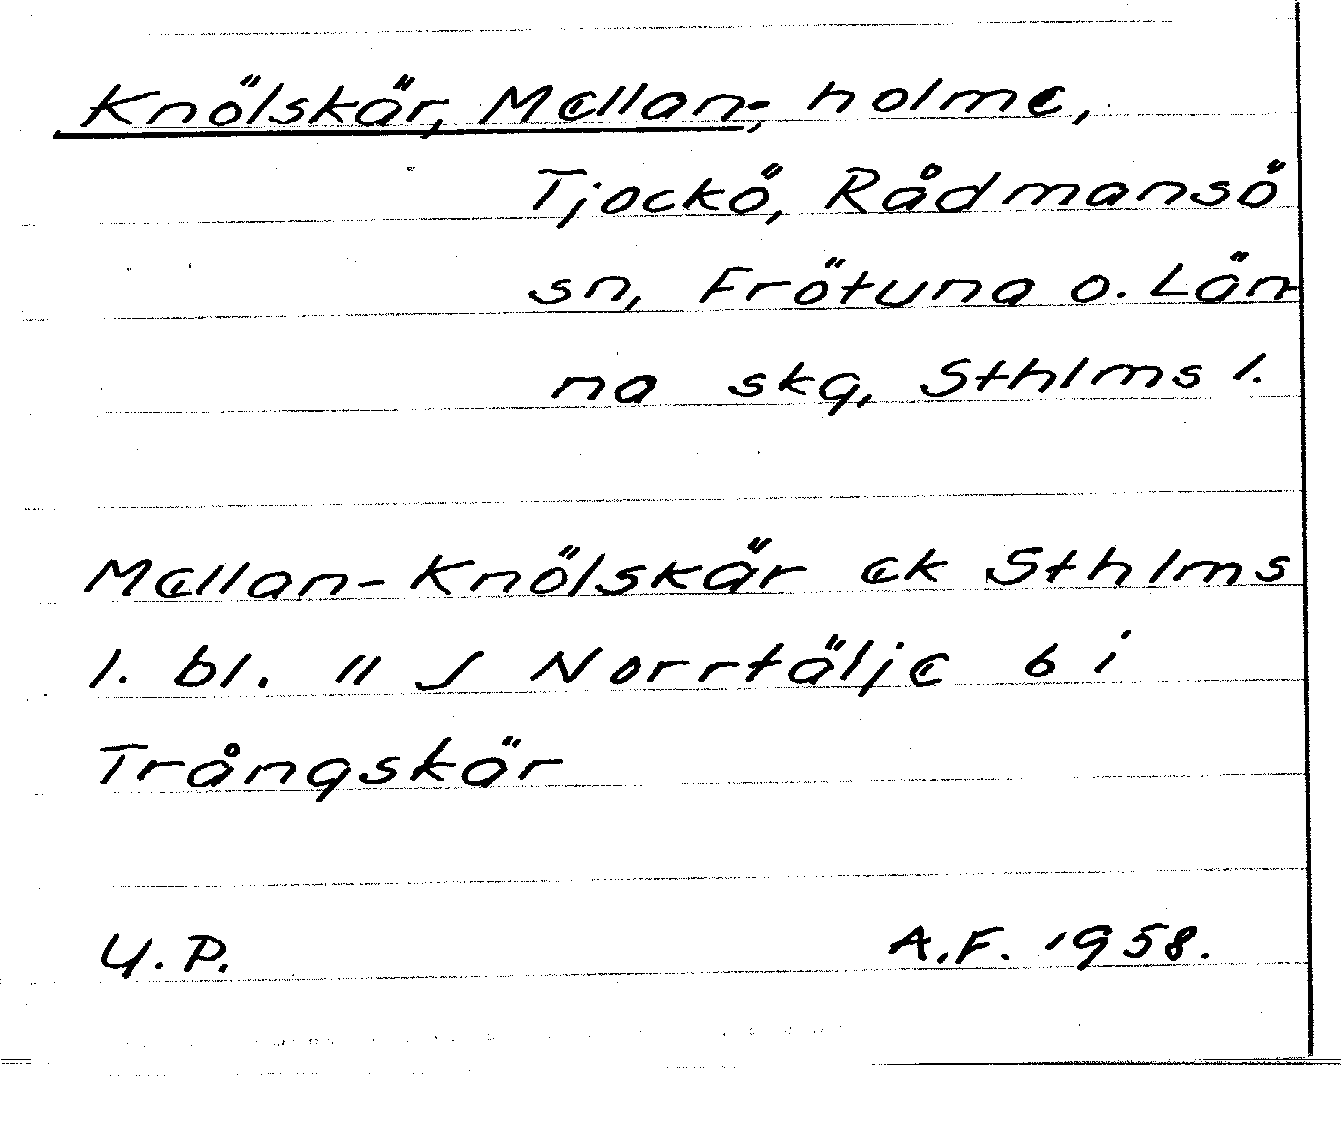 Knölskär, Mellan-, holme,
Tjockö, Rådmansö
sn, Frötuna o. Län-
na skg, Sthlms l.
Mellan-Knölskär ek Sthlms
l. bl. 11 J Norrtälje 6 i
Trångskär
U.P. A.F. 1958.